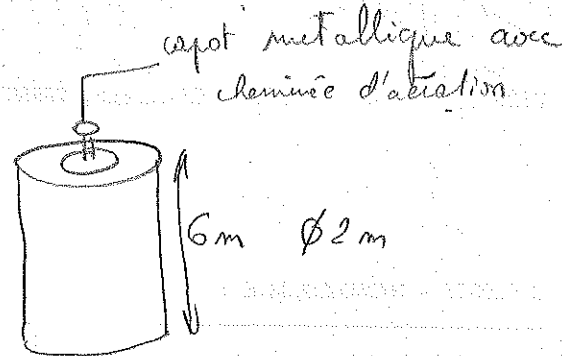 capot metallique avec
cheminée d'aération
6m ∅2m